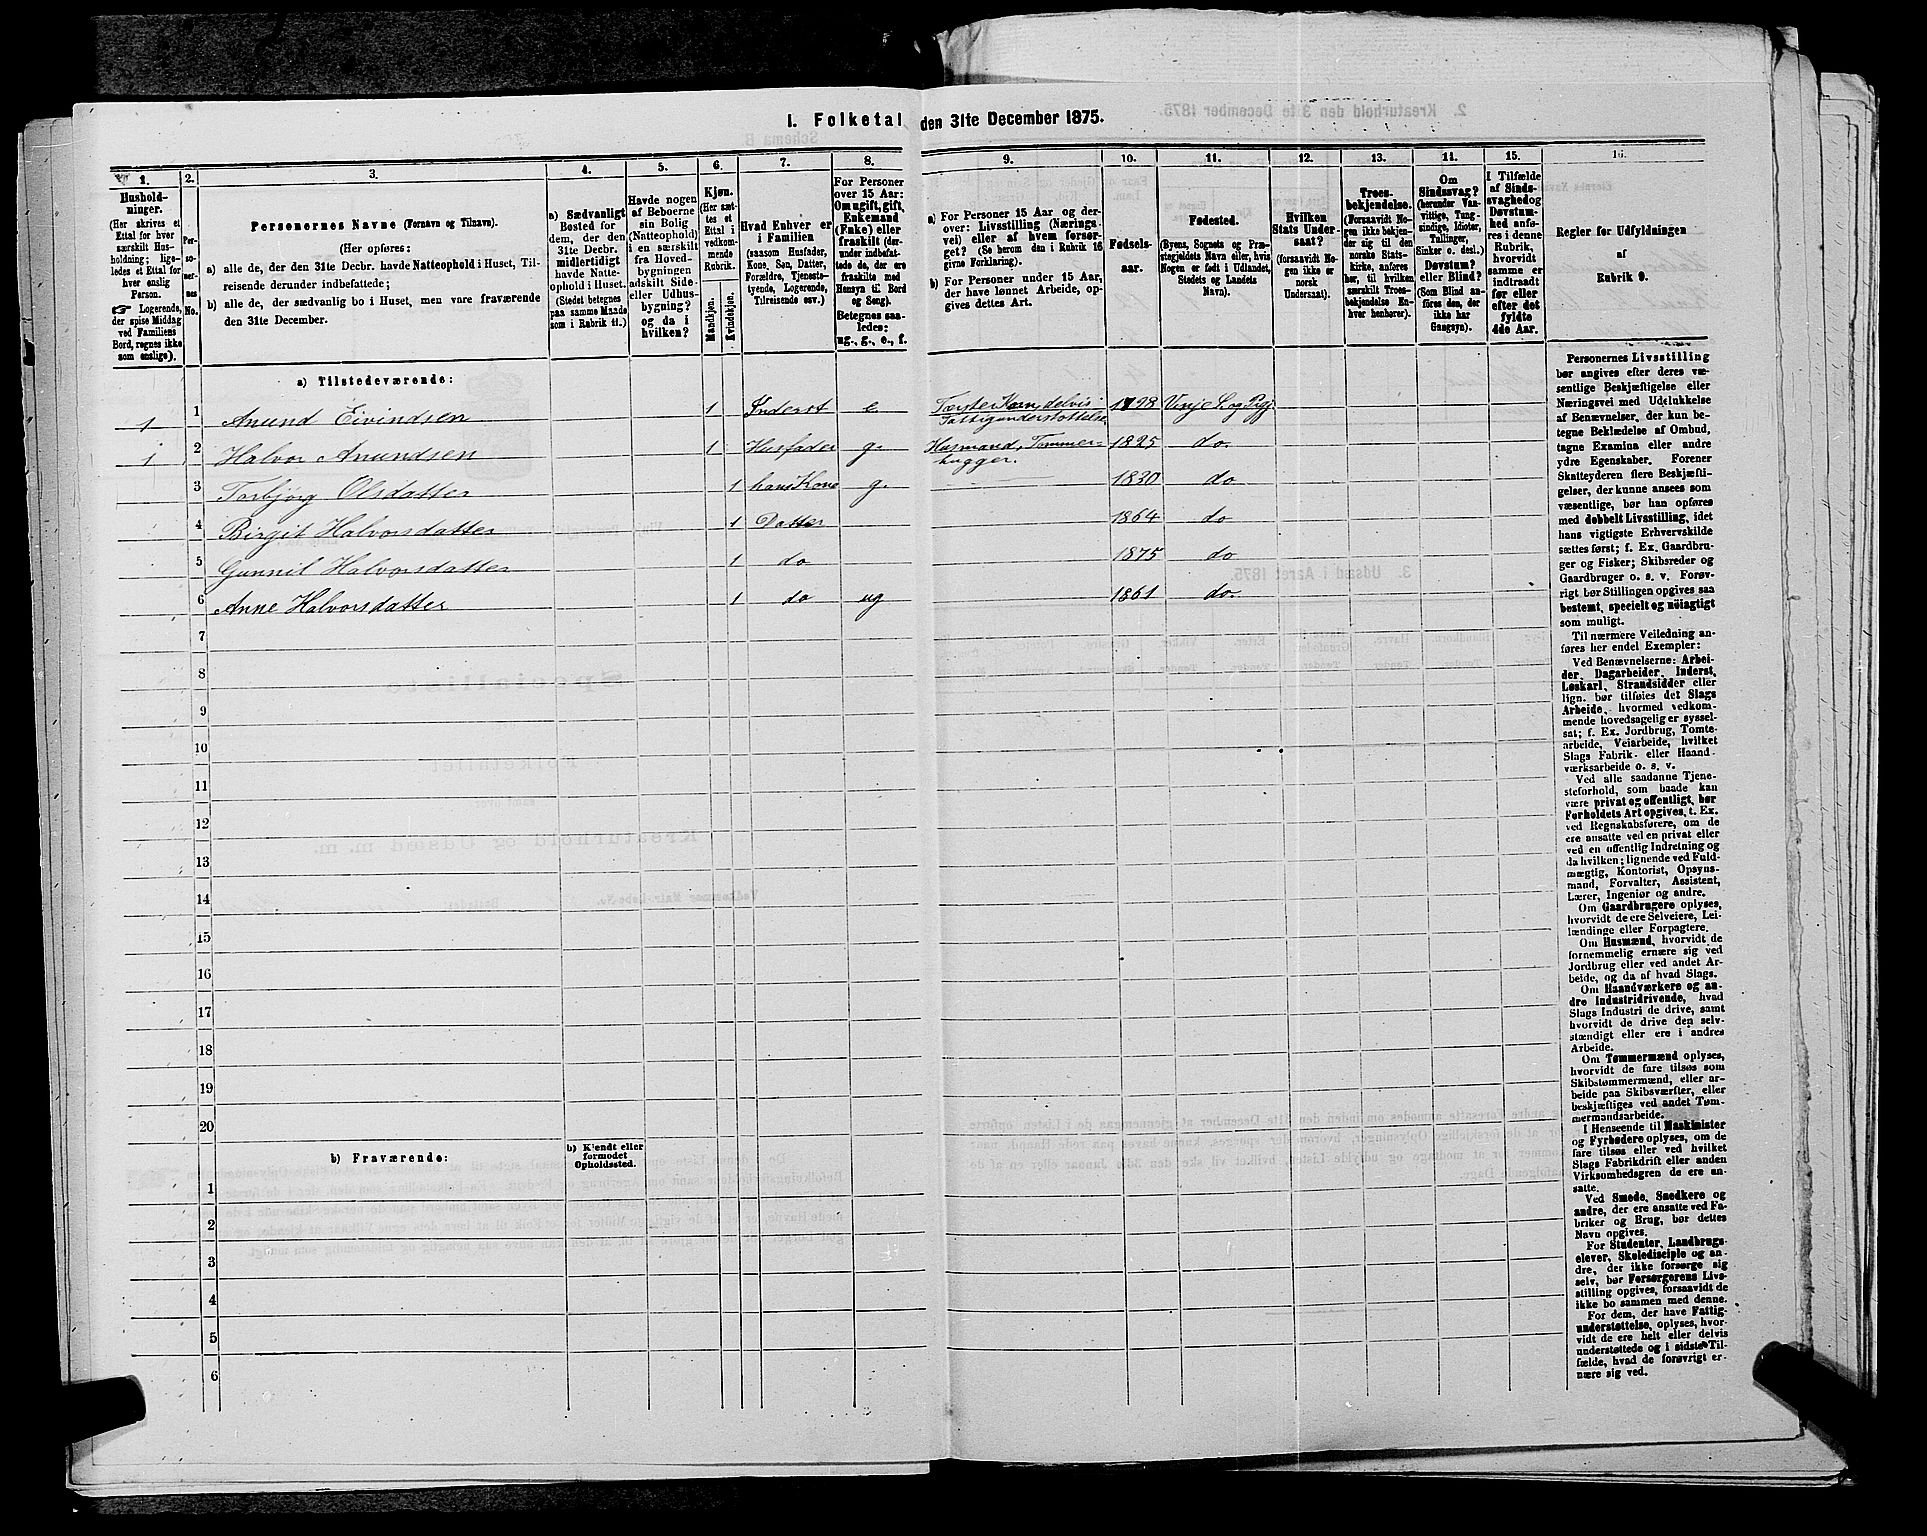 I. Folketal den 31te December 1875.
1.
2.
3.
4.
5.
6.
7.
8.
9.
10.
11.
12.
13.
14.
15.
16.
Hushold-
ninger.
(Her skrives et
Ettal for hver
særskilt Hus-
holdning; lige-
ledes et Ettal for
hver enslig
Person.
☞ Logerende,
der spise Middag
ved Familiens
Bord, regnes ikke
som enslige).
Per-
so-
ner-
nes
No.
Personernes Navne (Fornavn og Tilnavn).
(Her opføres:
a) alle de, der den 31te Decbr. havde Natteophold i Huset, Til-
reisende derunder indbefattede;
b) alle de, der sædvanlig bo i Huset, men vare fraværende
den 31te December.
a) Sædvanligt
Bosted for
dem, der den
31te Decbr.
midlertidigt
havde Natte-
ophold i Huset.
(Stedet betegnes
paa samme Maade
som i Rubrik 11.)
Havde nogen
af Beboerne
sin Bolig
(Natteophold)
i en særskilt
fra Hoved-
bygningen
adskilt Side-
eller Udhus-
bygning?
og da i
hvilken?
Kjøn.
(Her sæt-
tes et
Ettal i
vedkom-
mende
Rubrik.
Mandkjøn.
Kvindekjøn.
Hvad Enhver er
i Familien
(saasom Husfader,
Kone, Søn, Datter,
Forældre, Tjenesta-
tyende, Logerende,
Tilreisende osv.)
For Personer
over 15 Aar:
Om ugift, gift,
Enkemand
(Enke) eller
fraskilt (der-
indbefat-
tede de, der ere
fraskilte med
Hensyn til Bord
og Seng).
Betegnes saa-
ledes:
ug., g., e., f.
a) For Personer 15 Aar og der-
over: Livsstilling (Nærings-
vei) eller af hvem forsør-
get? (Se herom den i Rubrik 16
givne Forklaring).
b) For Personer under 15 Aar,
der have lønnet Arbeide, op-
gives dettes Art.
Fødsels-
aar.
Fødested.
(Byens, Sognets og Præ-
stegjeldets Navn eller, hvis
Nogen er født i Udlandet,
Stedets og Landets
Navn).
Hvilken
Stats Under-
saat?
(forsaavidt No-
gen ikke er
norsk
Undersaat).
Troes-
bekjendelse.
(Forsaavidt No-
gen ikke bekjen-
der sig til den
norske Stats-
kirke, anføres
her, til hvilken
særskilt Troes-
bekjendelse En-
hver henhører).
Om
Sindssvag?
(herunder Van-
vittige, Tung-
sindige, Idioter,
Tullinger,
Sinker o. desl.)
Døvstum?
eller Blind?
(Som Blind an-
føres den, der
ikke har
Gangsyn).
I Tilfælde
af Sinds-
svaghed og
Døvstum-
hed anfø-
res i denne
Rubrik,
hvorvidt
samme er
indtraadt
før eller
efter det
fyldte
4de Aar.
Regler for Udfyldningen
af
Rubrik 9.
a) Tilstedeværende:
1 1 Anund Eivindsen 1 Inderst e Tærsker Korn, delvis Fattigunderstøttelse 1798 Vinje S. og Pgj.
1 2 Halvor Anundsen 1 Husfader g. Husmand, Tømmer-
hugger. 1825 do.
3 Torbjörg Olsdatter 1 hans Kone g. 1830 do
4 Birgit Halvorsdatter 1 Datter 1864 do
5 Gunnil Halvorsdatter 1 do 1875 do
6 Anne Halvorsdatter 1 do ug 1861 do.
7
8
9
10
11
12
13
14
15
16
17
18
19
20
b) Fraværende:
b) Kjendt eller
formodet
Opholdssted.
1
2
3
4
5
6
Personernes Livsstilling
bør angives efter deres væ-
sentlige Beskjæftigelse eller
Næringsvei med Udelukkelse
af Benævnelser, der kun be-
tegne Beklædelse af Ombud,
tagne Examina eller andre
ydre Egenskaber. Forener
Skatteyderen flere Beskjæfti-
gelser, der kunne ansees som
væsentlige, bør han opføres
med dobbelt Livsstilling, idet
hans vigtigste Erhvervskilde
sættes først; f. Ex. Gaardbru-
ger og Fisker; Skibsreder og
Gaardbruger o. s. v. Forøv-
rigt bør Stillingen opgives saa
bestemt, specielt og nöiagtigt
som muligt.
Til nærmere Veiledning an-
føres her endel Exempler:
Ved Benævnelserne: Arbei-
der, Dagarbeider, Inderst,
Løskarl, Strandsidder eller
lign. bør tilføies det Slags
Arbeide, hvormed vedkom-
mende hovedsagelig er syssel-
sat; f. Ex. Jordbrug, Tomte-
arbeide, Veiarbeide, hvilket
Slags Fabrik- eller Haand-
værksarbeide o. s. v.
Ved alle saadanne Tjene-
steforhold, som baade kan
være privat og offentligt, bør
Forholdets Art opgives, t. Ex.
ved Regnskabsførere, om de
ere ansatte ved en privat eller
ved en offentlig Indretning og
da hvilken; lignende ved Fuld-
mægtig, Kontorist, Opsyns-
mand, Forvalter, Assistent,
Lærer, Ingeniør og andre.
Om Gaardbrugere oplyses,
hvorvidt de ere Selveiere, Lei-
lændinge eller Forpagtere.
Om Husmænd, hvorvidt de
fornemmelig ernære sig ved
Jordbrug eller ved andet Ar-
beide, og da af hvad Slags.
Om Haandværkere og an-
dre Industridrivende, hvad
Slags Industri de drive, samt
hvorvidt de drive den selv-
stændigt eller ere i andres
Arbeide.
Om Tømmermænd oplyses,
hvorvidt de fare tilsøs som
Skibstømmermænd, eller ar-
beide paa Skibsværfter, eller
beskjæftiges ved andet Tøm-
mermandsarbeide.
I Henseende til Maskinister
og Fyrbødere oplyses, om de
fare tilsøs eller ved hvilket
Slags Fabrikdrift eller anden
Virksomhedsgren de ere an-
satte.
Ved Smede, Snedkere og
andre, der ere ansatte ved Fa-
briker og Brug, bør dettes
Navn opgives.
For Studenter, Landbrugs-
elever, Skoledisciple og an-
dre, der ikke forsørge sig
selv, bør Forsørgerens Livs-
stilling opgives, forsaavidt de
ikke bo sammen med denne.
For dem, der have Fattig-
understøttelse, oplyses, hvor-
vidt de ere helt eller delvis
understøttede og i sidste Til-
fælde, hvad de forøvrigt er-
nære sig ved.